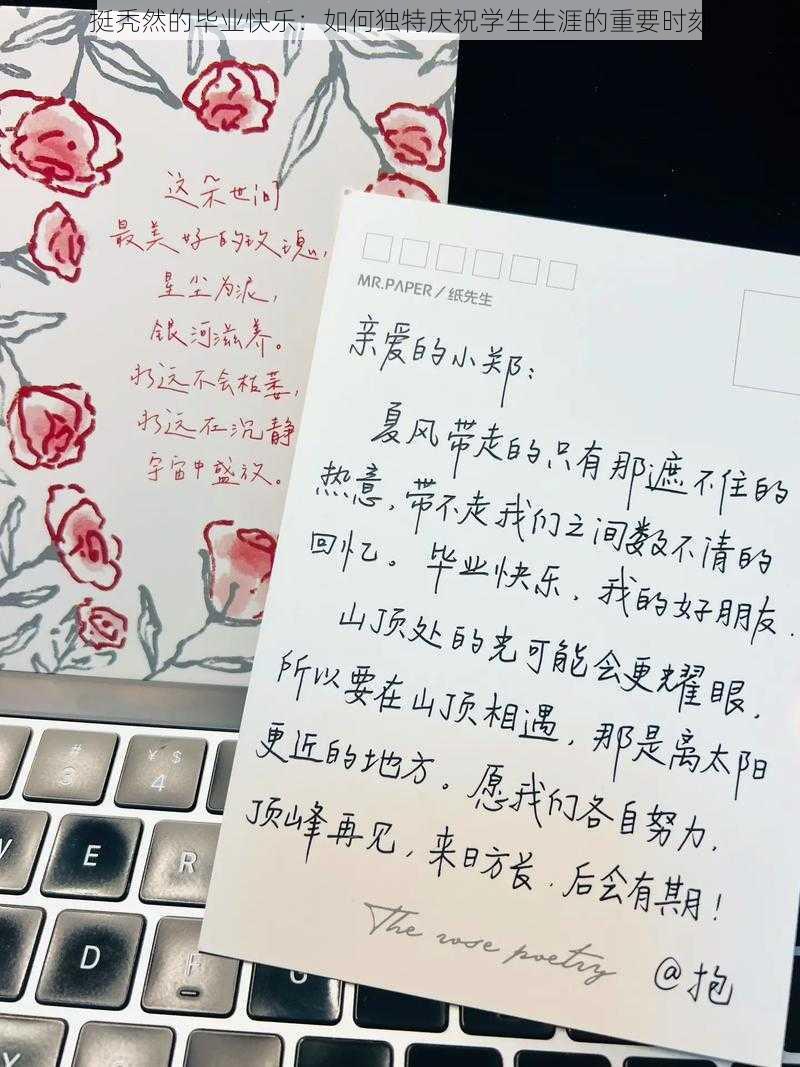 挺秃然的毕业快乐：如何独特庆祝学生生涯的重要时刻
这朵世间
最美好的玫瑰，
星尘为泥，
银河滋养。
永远不会枯萎，
永远在沉静
宇宙中盛放。
MR.PAPER / 纸先生
亲爱的小郑：
夏风带走的只有那遮不住的
热意，带不走我们之间数不清的
回忆。毕业快乐，我的好朋友.
山顶处的光可能会更耀眼，
所以要在山顶相遇，那是离太阳
更近的地方。愿我们各自努力，
顶峰再见，来日方长，后会有期！
The rose poetry
@抱
#
3
¥ $
4
W
E
R
D
F
G